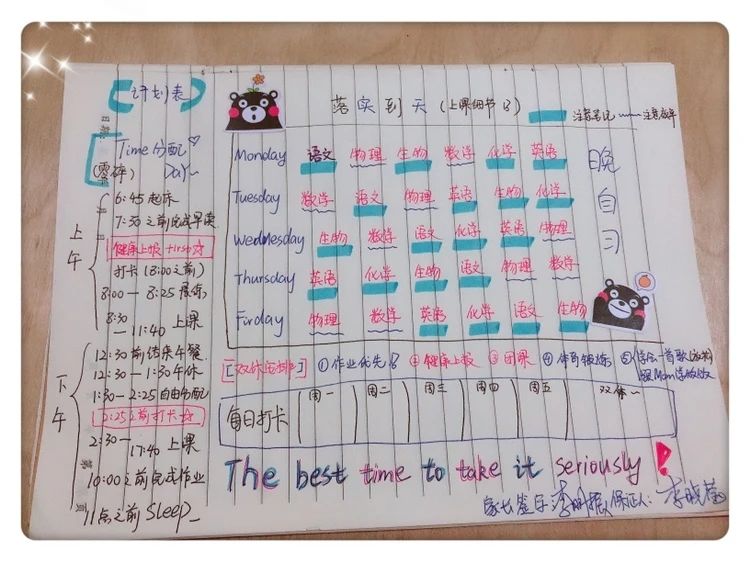 计划表
Time分配
(零碎) Day~
上午
6:45起床
7:30之前完成早读
健康上报 first☆
打卡(8:00之前)
8:00——8:25
8:30
—11:40 上课
下午
12:30前结束午餐
12:30—1:30午休
1:30—2:25自由分配
2:25之前打卡☆
2:30—
17:40 上课
10:00之前完成作业
11点之前Sleep_
落实到天(上课细节)
注意笔记 注意效率
Monday 语文 物理 生物 数学 化学 英语
Tuesday 数学 语文 物理 英语 生物 化学
Wednesday 生物 数学 语文 化学 英语 物理
Thursday 英语 化学 生物 语文 物理 数学
Firday 物理 数学 英语 化学 语文 生物
晚自习
[双休安排] ①作业优先 ②健康上报 ③团课 ④体育锻炼 ⑤学会一首歌
跟Mom学做饭
每日打卡 周一 周二 周三 周四 周五 双休~
The best time to take it seriously!
家长签字: 保证人: